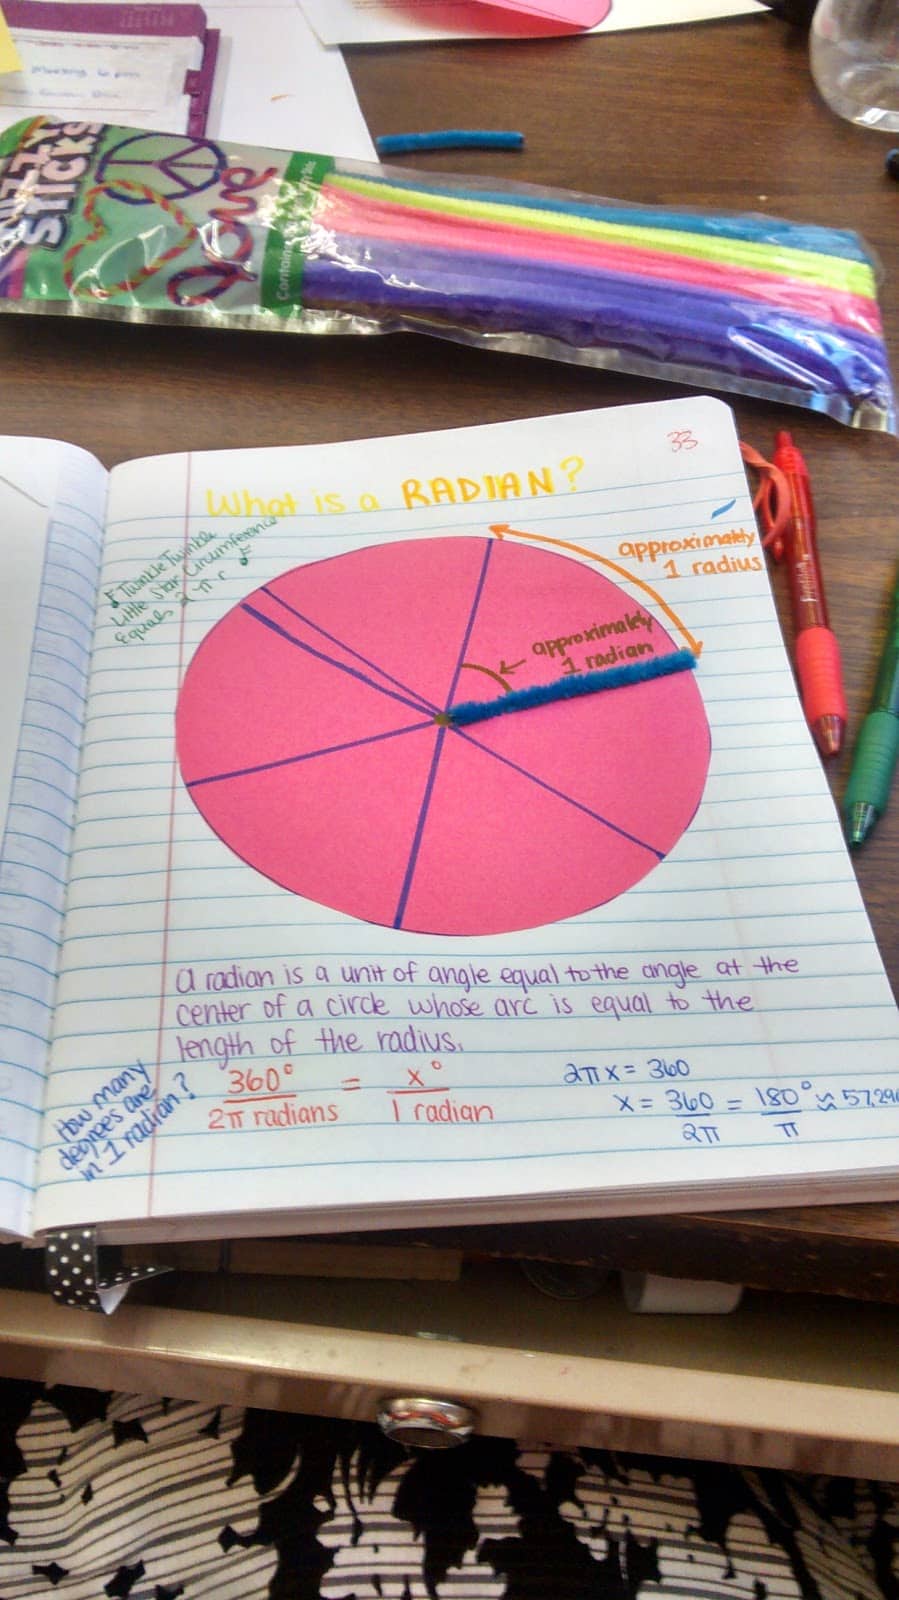 Sticks
Love
33
What is a RADIAN?
Twinkle Twinkle
Little Star Circumference
Equals 2 π r
approximately
1 radius
approximately
1 radian
A radian is a unit of angle equal to the angle at the
center of a circle whose arc is equal to the
length of the radius.
How many
degrees are
in 1 radian?
360° = x°
2π radians 1 radian
2πx = 360
x = 360 = 180° ≈ 57.29
2π π